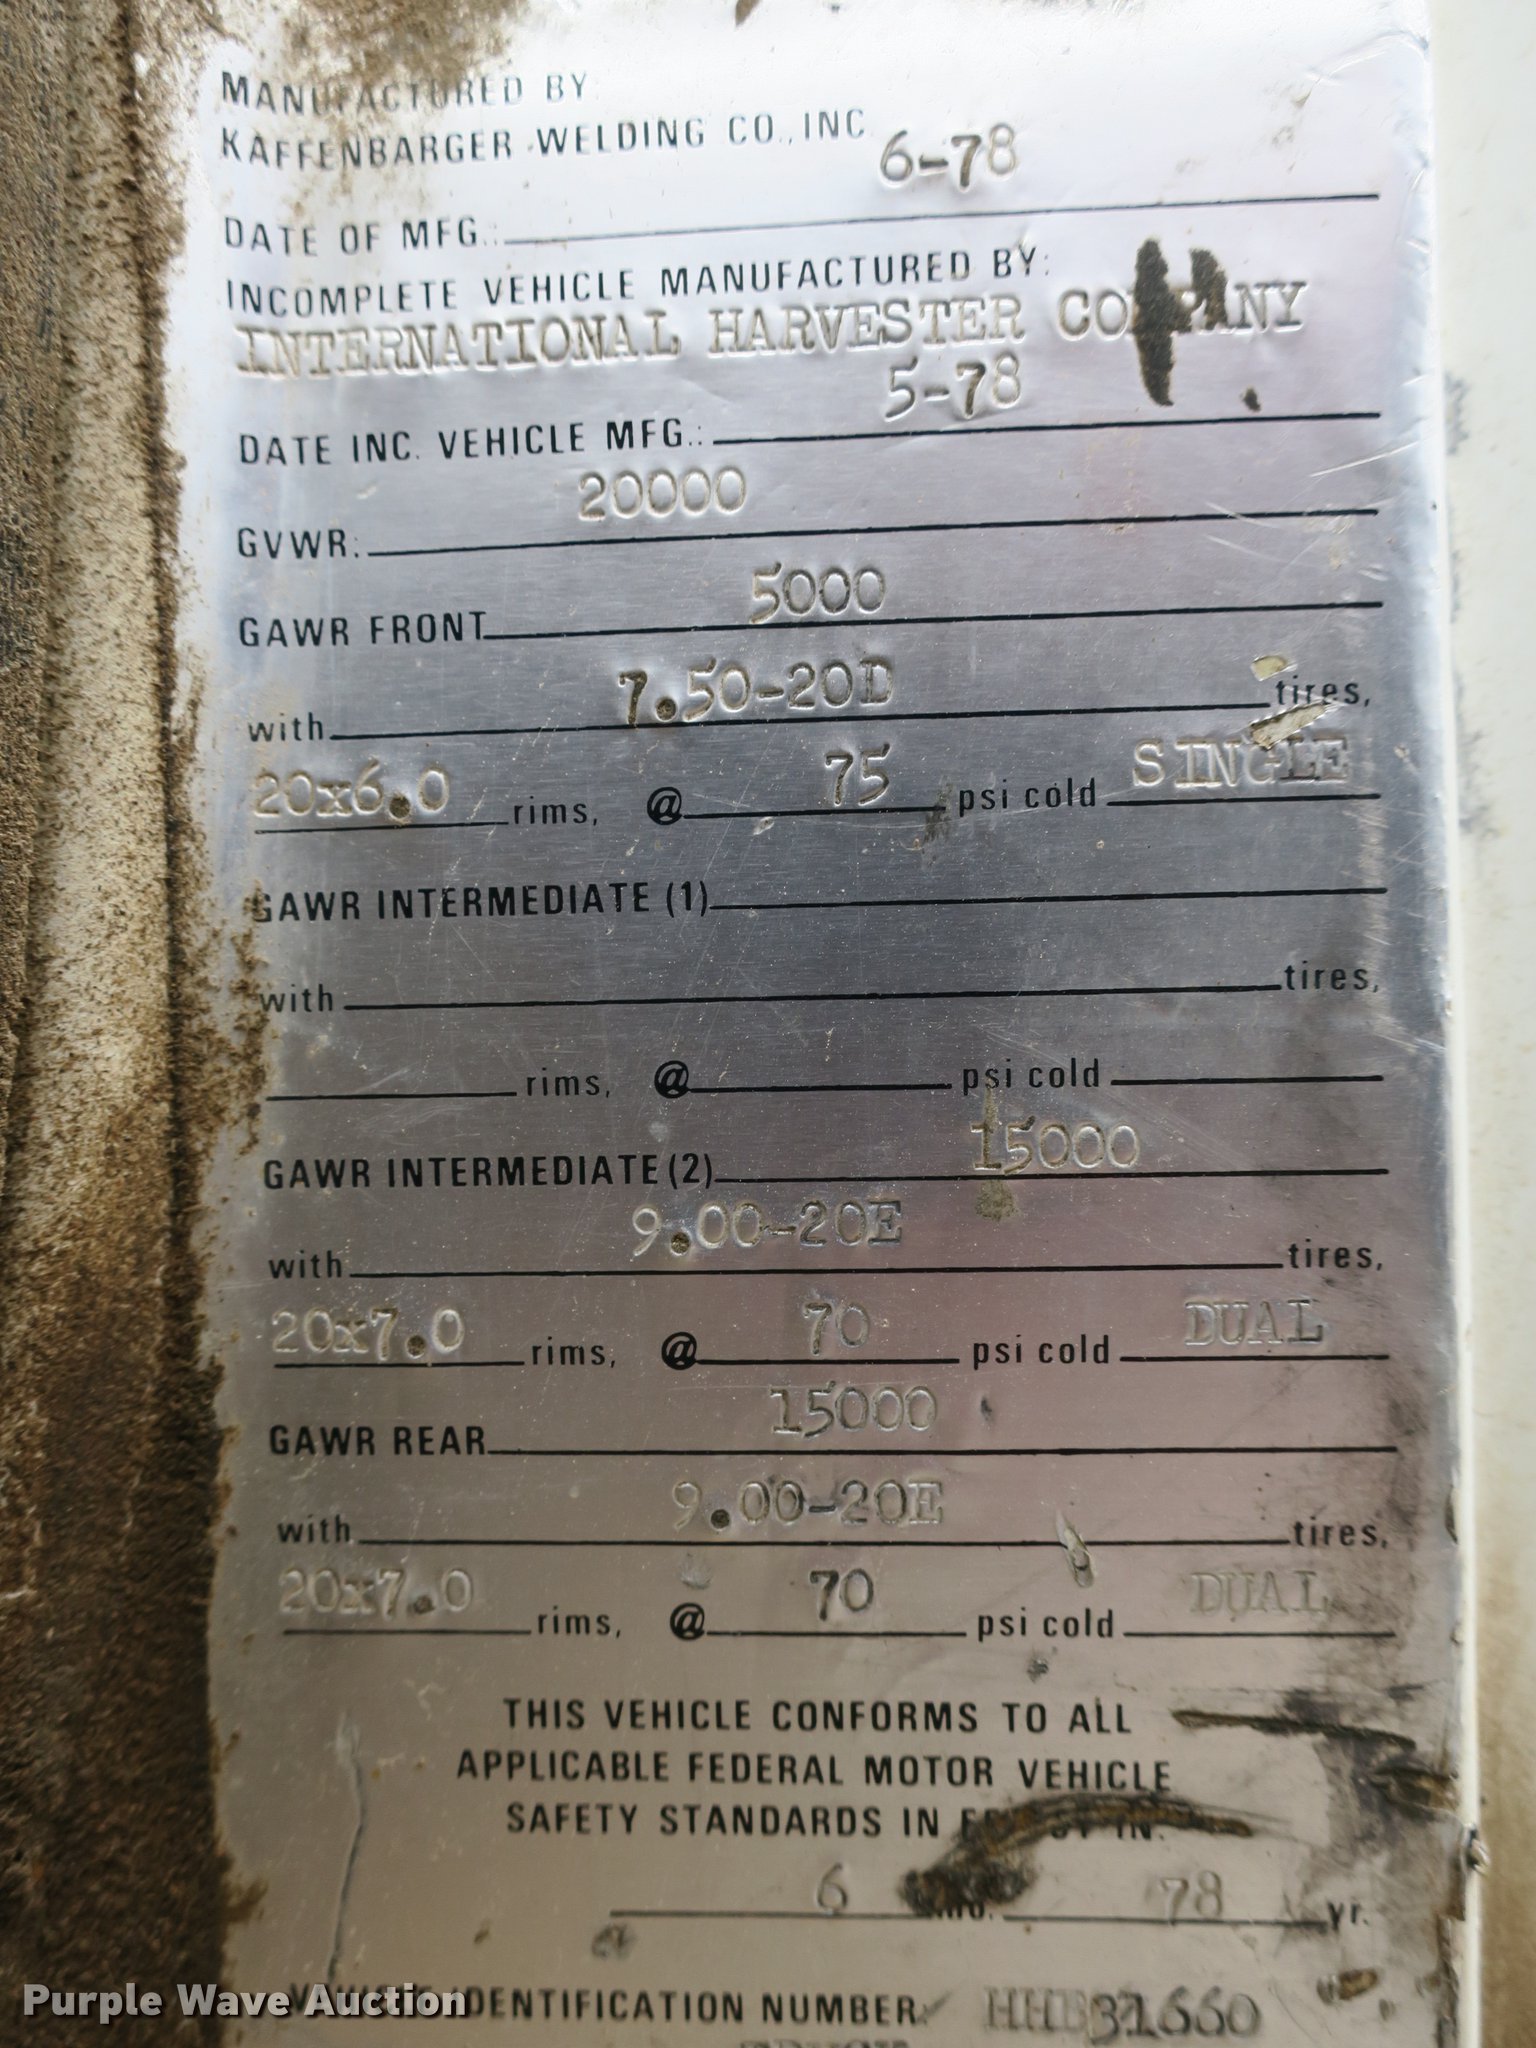 MANUFACTURED BY:
KAFFENBARGER WELDING CO., INC
DATE OF MFG.: 6-78
INCOMPLETE VEHICLE MANUFACTURED BY:
INTERNATIONAL HARVESTER COMPANY
DATE INC. VEHICLE MFG.: 5-78
GVWR: 20000
GAWR FRONT 5000
with 7.50-20D tires,
20x6.0 rims, @ 75 psi cold SINGLE
GAWR INTERMEDIATE (1)
with tires,
rims, @ psi cold
GAWR INTERMEDIATE (2) 15000
with 9.00-20E tires,
20x7.0 rims, @ 70 psi cold DUAL
GAWR REAR 15000
with 9.00-20E tires,
20x7.0 rims, @ 70 psi cold DUAL
THIS VEHICLE CONFORMS TO ALL
APPLICABLE FEDERAL MOTOR VEHICLE
SAFETY STANDARDS IN EFFECT IN:
6 mo. 78 yr.
VEHICLE IDENTIFICATION NUMBER: HHB31660
Purple Wave Auction